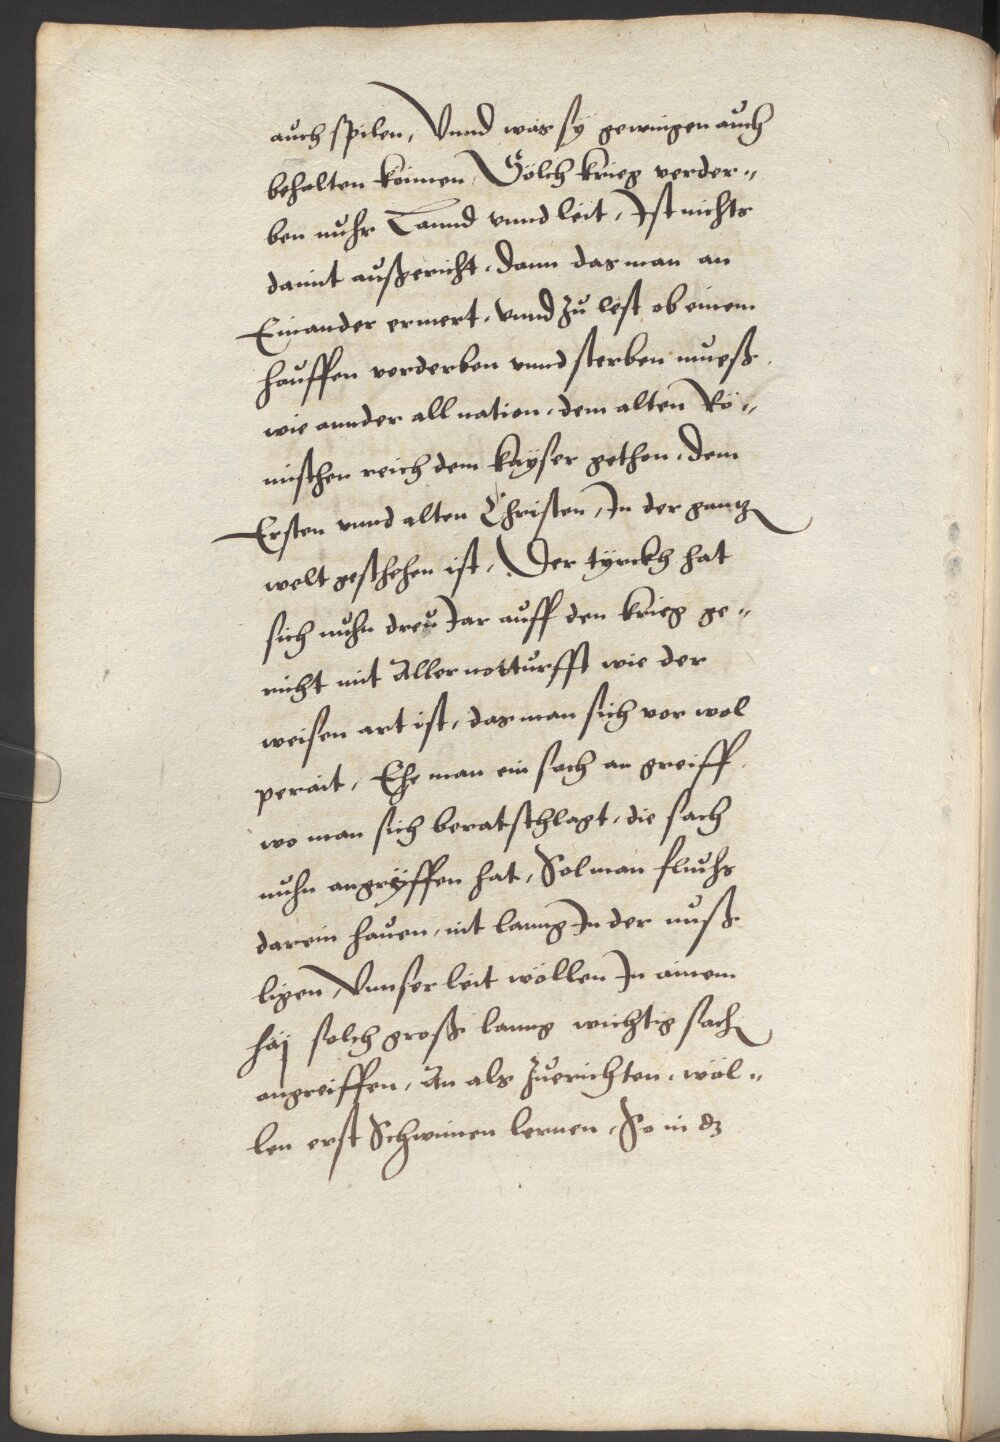 auch spilen, Vnnd was sÿ gewingen auch
behalten können, Sölch krieg verder-
ben nuhr Lannd vnnd leit, Ist nichts
damit außgericht, dann das man an
Einander ermert, vnnd zu lest ob einem
hauffen verderben vnnd sterben mueß
wie annder all nation, dem alten Rö-
mischen reich dem kaÿser gethon, dem
Ersten vnnd alten Christen, In der gantz
welt geschehen ist, Der tyrckh hat
sich nuhn dreu Jar auff den krieg ge-
richt mit Aller notturfft wie der
weisen art ist, das man sich vor wol
perait, Ehe man ein sach an greiff
wo man sich beratschlagt, die sach
nuhn angryffen hat, Sol man fluchs
darein hauen, nit lanng In der nuß
ligen, Vnnser leit wöllen In ainem
häj solch groß lanng wichtig sach
angreiffen, An als Zuerichten, wöl-
len erst Schwimen lernen, So in dz